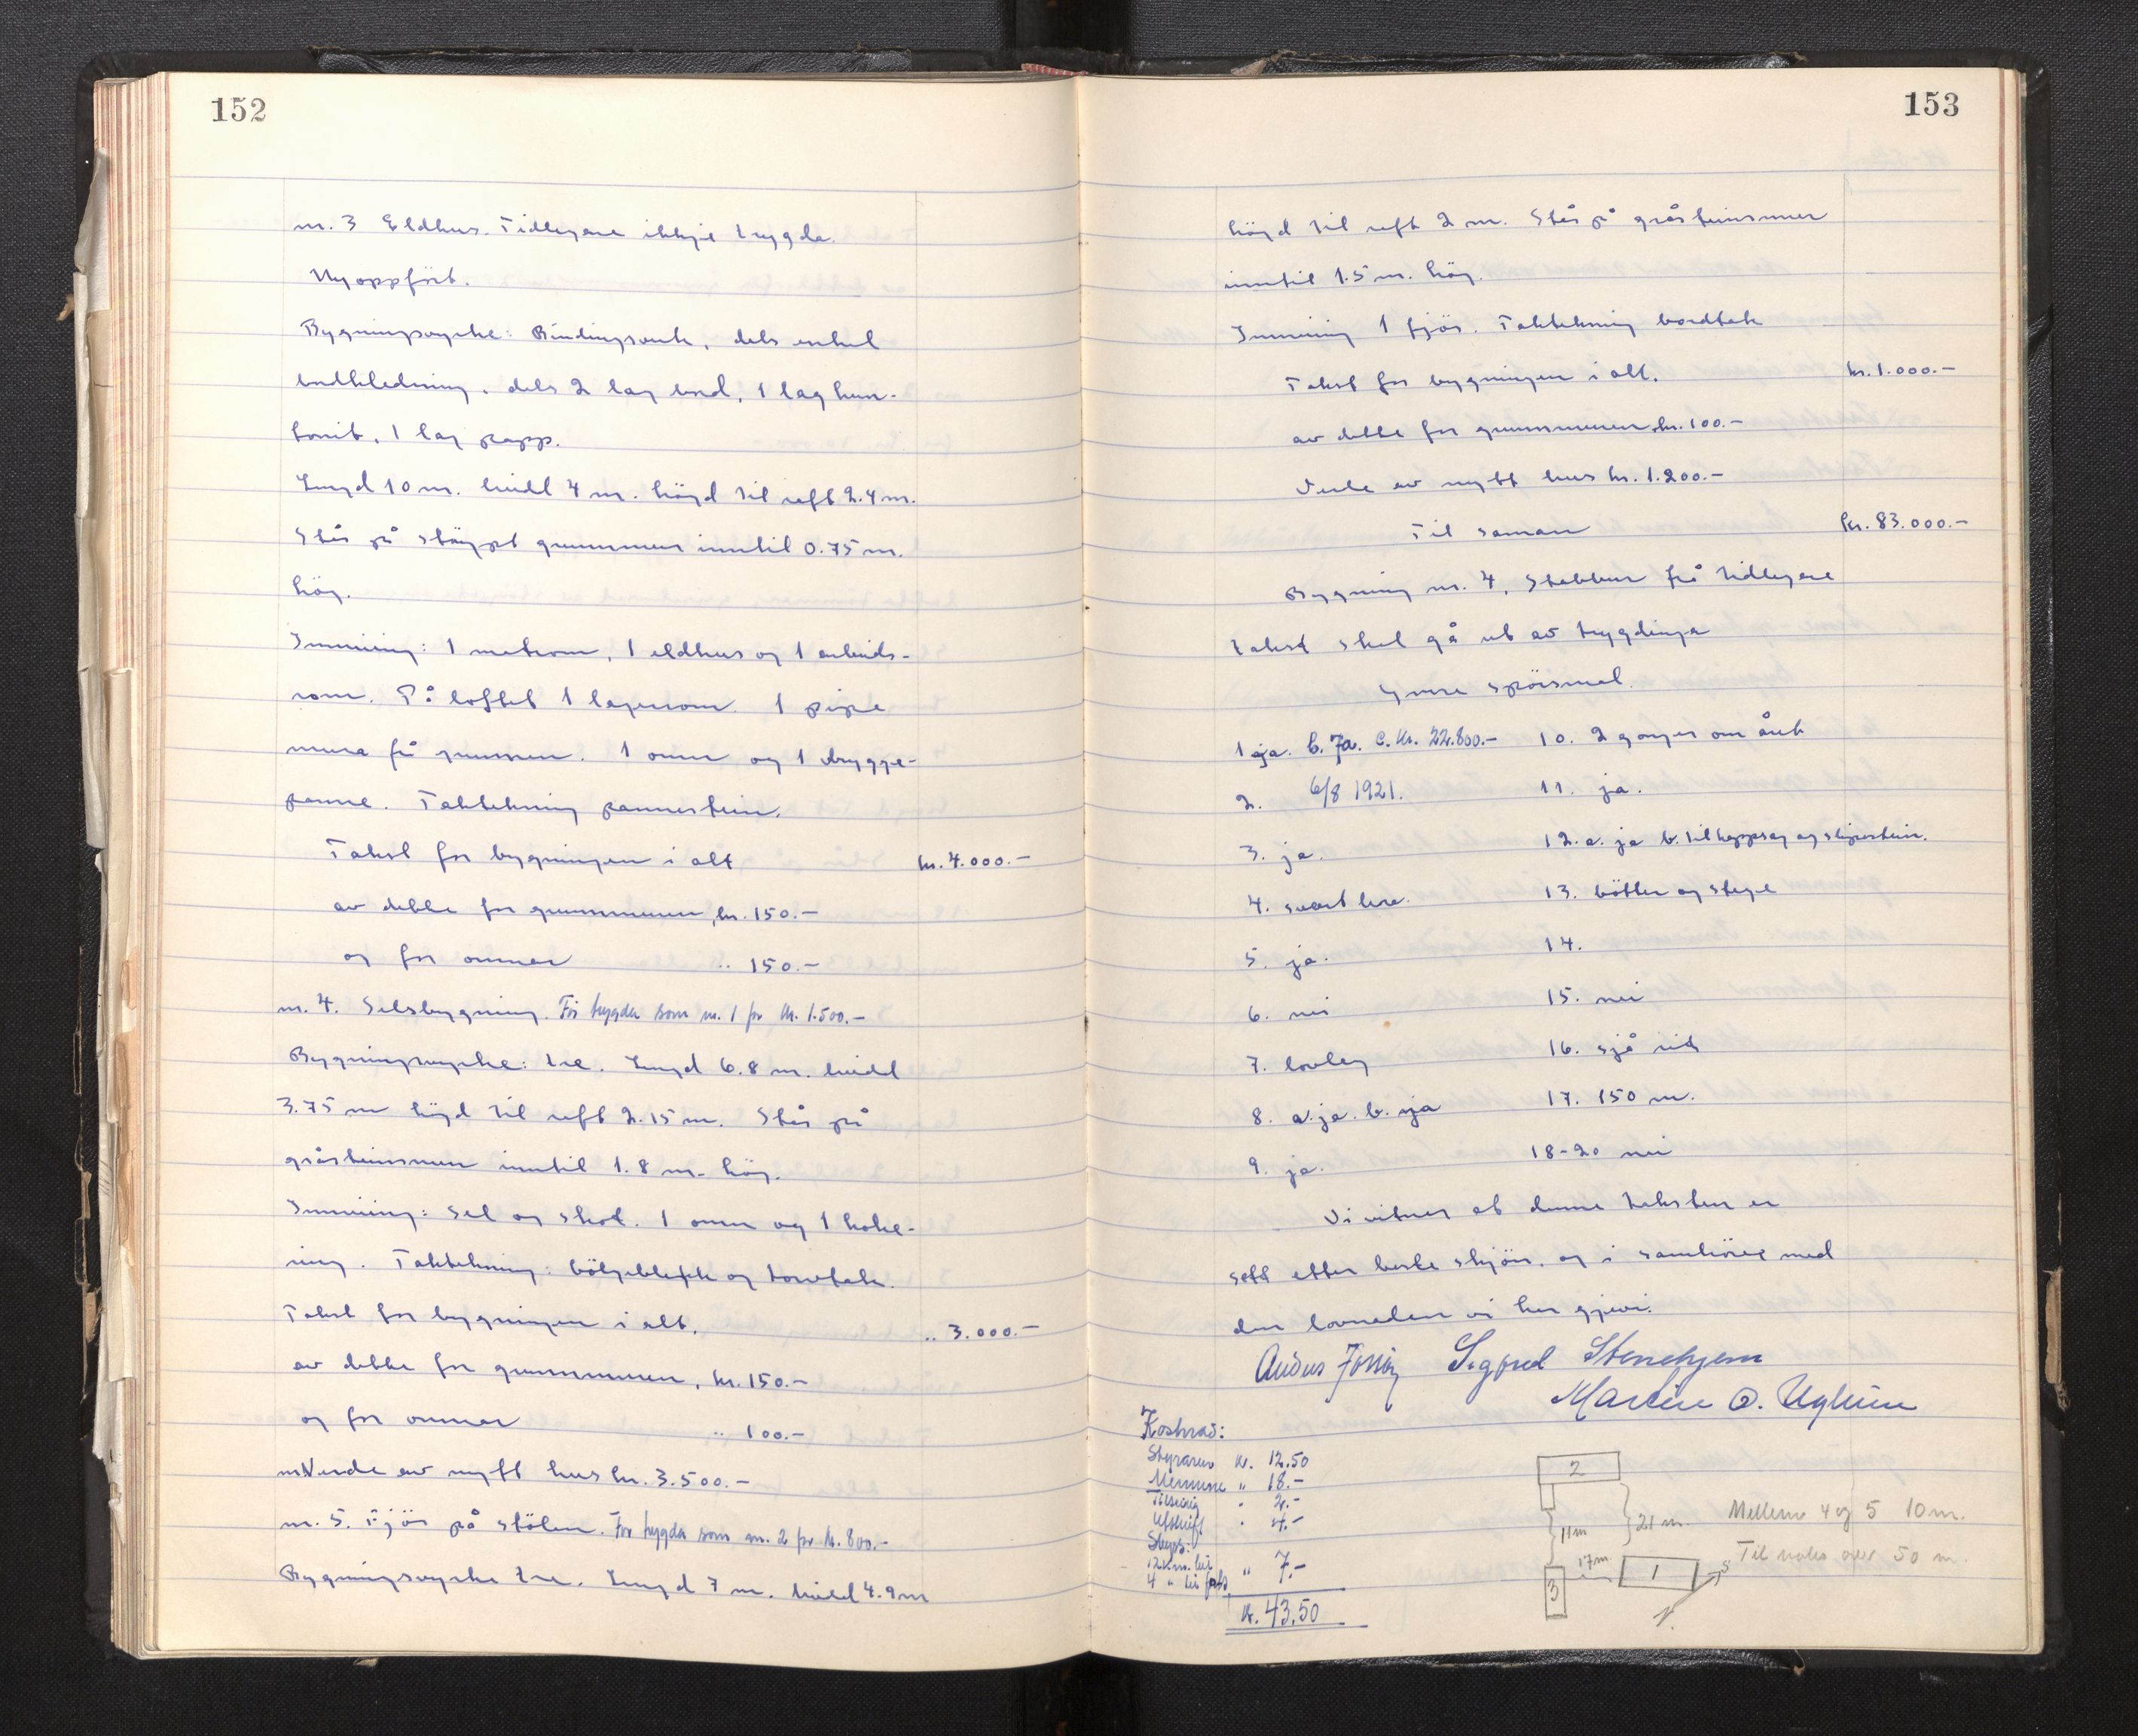 152
nr. 3 Eldhus. Tidlegare ikkje trygda.
Nyoppfört.
Bygningsvyrke: Bindingsverk, dels enkel
bordkledning, dels 2 lag bord, 1 lag hun-
tonit, 1 lag papp.
Lengd 10 m. breidd 4 m. högd til reft 2.4 m.
Står på stöypt grunnmur inntil 0.75 m.
hög.
Innreiing: 1 matrom, 1 eldhus og 1 arbeids-
rom. På loftet 1 lagerrom. 1 pipe
mura frå grunnen. 1 omn og 1 bryggje-
panne. Taktekning pannestein.
Takst for bygningen i alt kr. 4.000.-
av dette for grunnmuren, kr. 150.-
og for omnar " 150.-
nr. 4. Selsbygning. För trygda som nr. 1 for kr. 1.500.-
Bygningsvyrke: tre. Lengd 6.8 m. breidd
3.75 m högd til reft 2.15 m. Står på
gråsteinsmur inntil 1.8 m. hög.
Innreiing: Sel og skot. 1 omn og 1 koke-
ring. Taktekning: bölgeblekk og torvtak.
Takst for bygningen i alt. " 3.000.-
av dette for grunnmuren, kr. 150.-
og for omnar " 100.-
Verde av nytt hus kr. 3.500.-
nr. 5. Fjös på stölen. För trygda som nr. 2 for kr. 800.-
Bygningsvyrke tre. Lengd 7 m. breidd 4.9 m
153
högd til reft 2 m. Står på gråsteinsmur
inntil 1.5 m. hög.
Innreiing 1 fjös. Taktekning bordtak
Takst for bygningen i alt. kr. 1.000.-
av dette for grunnmuren kr. 100.-
Verde av nytt hus kr. 1.200.-
Til saman kr. 83.000.-
Bygning nr. 4, Stabbur frå tidlegare
takst skal gå ut av trygdinga
Ymse spörsmål.
1 a ja. b. ja. c. kr. 22.800.- 10. 2 gonger om året
2. 6/8 1921. 11. ja.
3. ja. 12. a. ja b. til kappsag og slipestein.
4. svart lera. 13. bötter og stige
5. ja. 14.
6. nei 15. nei
7. lovleg 16. sjå riss
8. a. ja. b. ja 17. 150 m.
9. ja. 18-20 nei
Vi vitnar at denne taksten er
sett etter beste skjön, og i samhöve med
den lovnaden vi har gjevi.
Sigfred Stenehjem
Martin O. Uglum
Kostnad:
Styraren kr. 12.50
Mennene " 18.-
Tilseiing " 2.-
Utskrift " 4.-
Skyss:
12 km. bil
" 7.-
kr. 43,50
2
11 m
21 m.
17 m
1
3
S
N.
Mellom 4 og 5 10 m.
Til nabo over 50 m.